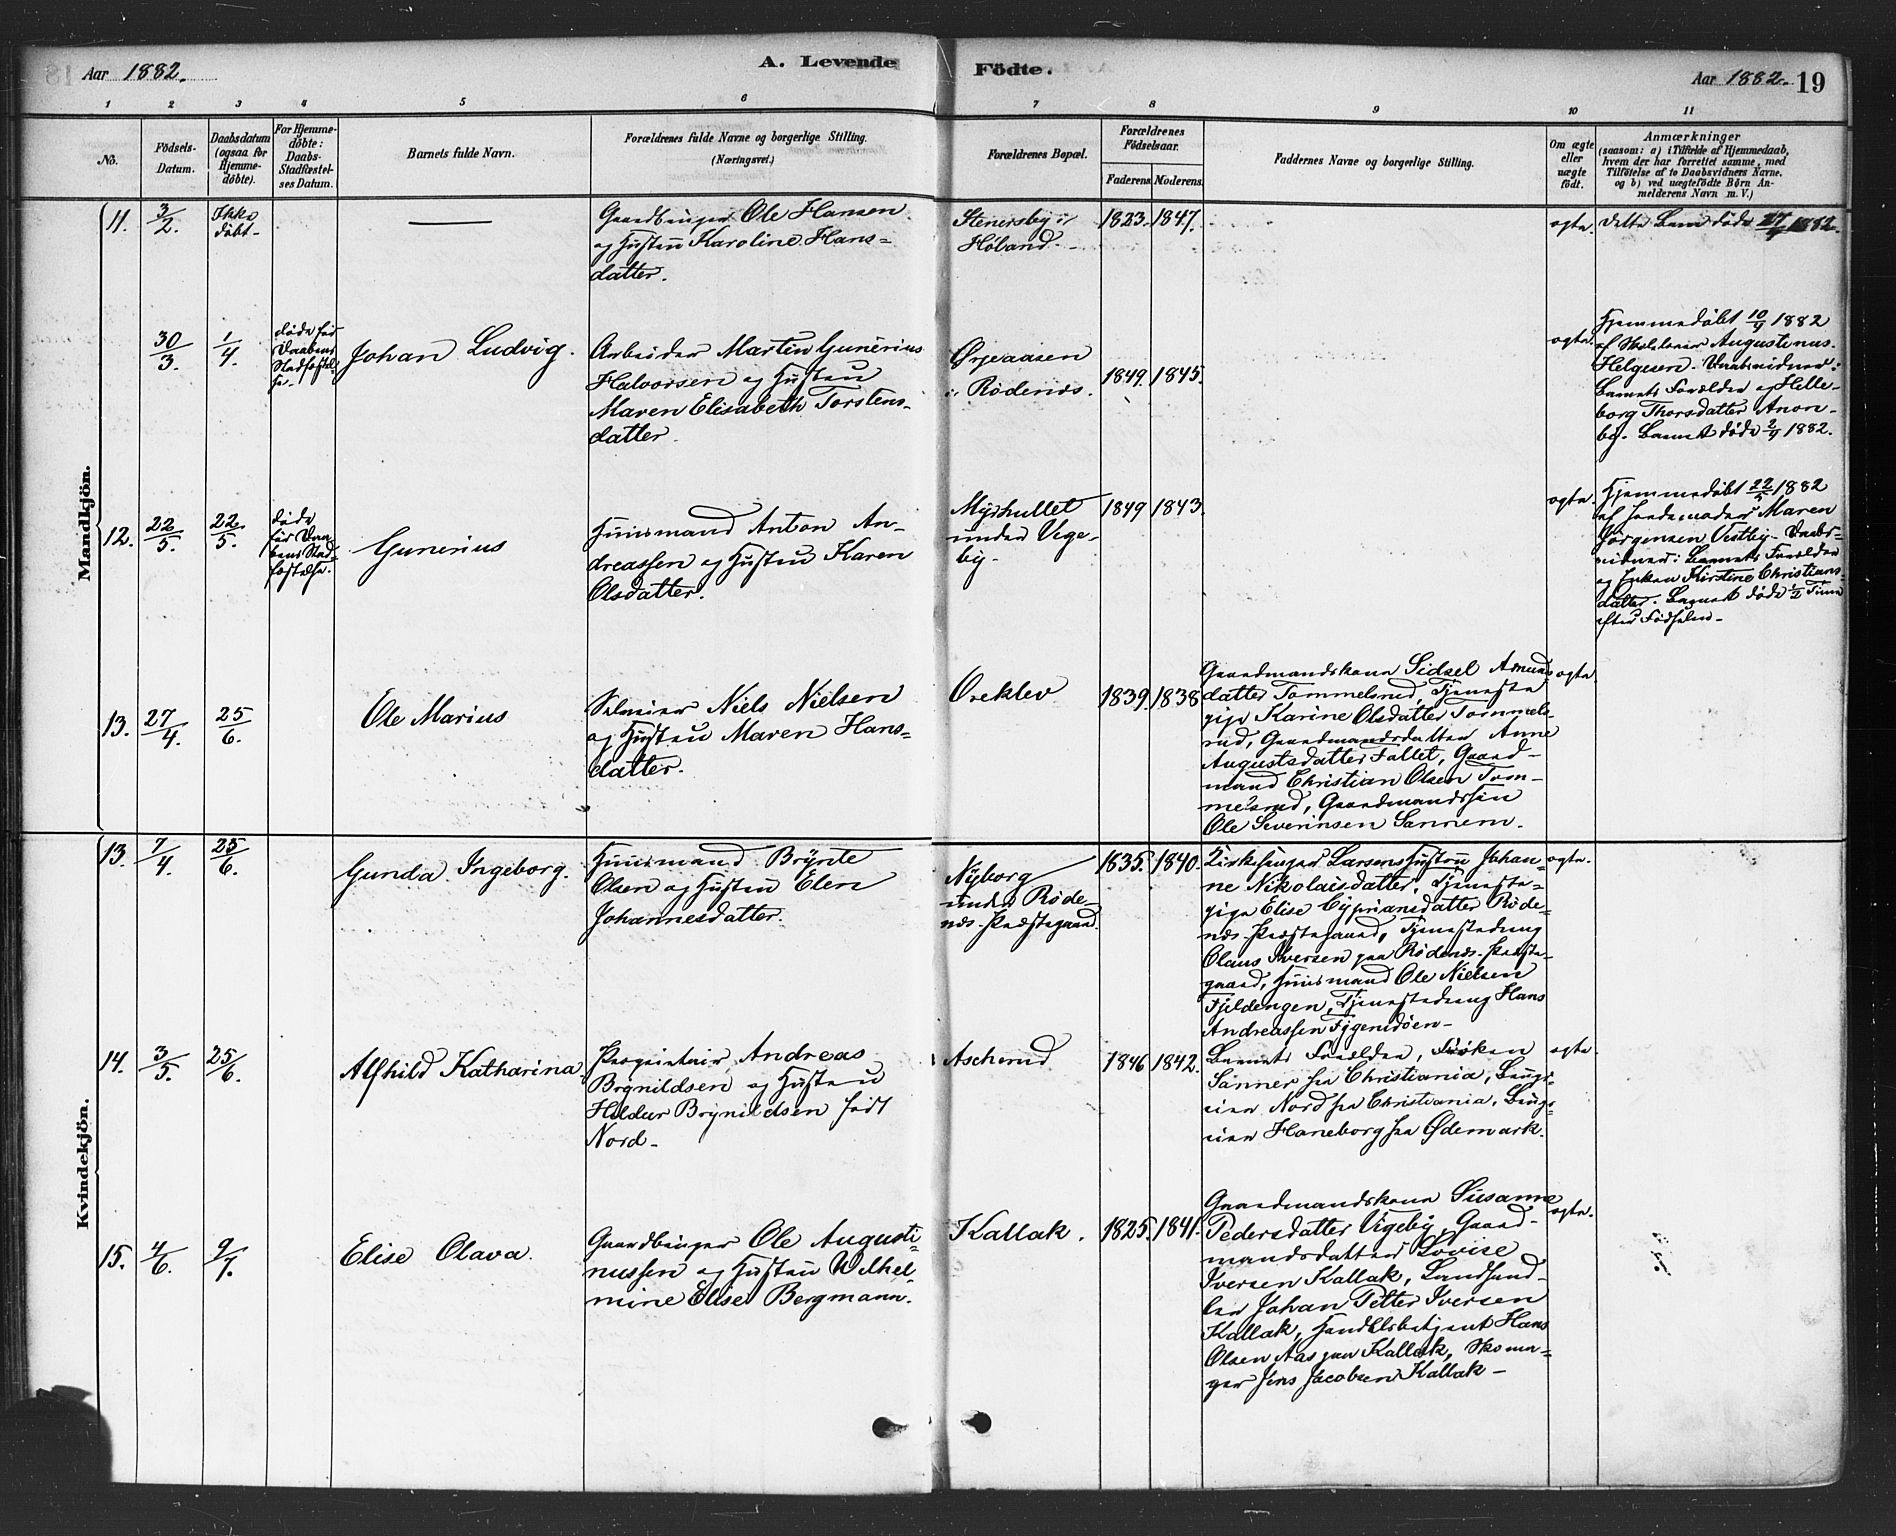 Aar 1882.
A. Levende
Födte.
Aar 1882. 19
1 2 3 4 5 6 7 8 9 10 11
No.
Födsels-
Datum.
Daabsdatum
(ogsaa for
Hjemme-
döbte).
For Hjemme-
döbte:
Daabs-
Stadfæstel-
ses Datum.
Barnets fulde Navn.
Forældrenes fulde Navne og borgerlige Stilling.
(Næringsvei.)
Forældrenes Bopæl.
Forældrenes
Födselsaar.
Faderens Moderens.
Faddernes Navne og borgerlige Stilling.
Om ægte
eller
uægte
födt.
Anmærkninger
(saasom: a) i Tilfælde af Hjemmedaab,
hvem der har forrettet samme, med
Tilföielse af to Daabsvidners Navne,
og b) ved uægtefödte Börn An-
melderens Navn m. V.)
Mandkjön.
11. 3/2. Ikke
døbt.
Gaardbruger Ole Hansen
og Hustru Karoline Hans-
datter.
Stenersby i
Høland.
1823. 1847.
ægte.
Dette Barn døde 1882.
30/3. 1/4.
døde før
Daabens
Stadfæstel-
se.
Johan Ludvig.
Arbeider Martin Gunerius
Halvorsen og Hustru
Maren Elisabeth Torstens-
datter.
Ørjeaasen
i Rødenes.
1849. 1845.
ægte.
Hjemmedøbt 1882
af Skolelærer Augustinus
Helgesen. Daabsvidner:
Barnets Forældre og Helle-
borg Thorsdatter
Barnet døde 1882.
12. 22/5. 22/5.
døde
før Daa-
bens Stad-
fæstelse.
Gunerius
Huusmand Anton An-
dreassen og Hustru Karen
Olsdatter.
Myrhullet
under Vege-
by.
1849 1843.
ægte.
Hjemmedøbt 22/5 1882
af Jordemoder Maren
Jørgensen Vestby. Daabs-
vidner: Barnets Forældre
og Enken Kirstine Christians-
datter. Barnet døde 1/2 Time
efter Fødselen.
13. 27/4. 25/6.
Ole Marius
Selveier Niels Nielsen
og Hustru Maren Hans-
datter.
Oreklev
1839. 1838
ægte.
Gaardmandskone Sidsel Amunds
datter Tommelsrud, Tjeneste
pige Karine Olsdatter Tommels-
rud, Gaardmandsdatter Anne
Augustsdatter Fallet, Gaard-
mand Christian Olsen Tom-
melsrud, Gaardmandssøn
Ole Severinsen Sannem.
Kvindekjön.
13. 7/4. 25/6.
Gunda Ingeborg.
Huusmand Brynte
Olsen og Hustru Elen
Johannesdatter.
Nyborg
under Røde-
nes Præstegaard.
1835. 1840.
ægte.
Kirkesanger Larsens Hustru Johan-
ne Nikolaisdatter, Tjeneste-
pige Elise Cypriansdatter Røde-
nes Præstegaard, Tjenestedreng
Olaus Iversen paa Rødenes Præste-
gaard, Huusmand Ole Nielsen
Fjeldengen, Tjenestedreng Hans
Andreassen
14. 3/5. 25/6.
Alfhild Katharina.
Proprietair Andreas
Brynildsen og Hustru
Heldur Brynildsen født
Nord.
Ascherud
1846 1842.
ægte.
Barnets Forældre, Frøken
Sanner fra Christiania,
Nord fra Christiania,
Haneborg fra Ødemark.
15. 4/6. 9/7.
Elise Olava.
Gaardbruger Ole Augusti-
nussen og Hustru Wilhel-
mine Elise Bergmann.
Kallak.
1825. 1841.
ægte.
Gaardmandskone Susanne
Pedersdatter Vegeby, Gaard-
mandsdatter Lovise
Iversen Kallak, Landhand-
ler Johan Petter Iversen
Kallak, Handelsbetjent Hans
Olsen Aas paa Kallak, Skoma-
ger Jens Jacobsen Kallak